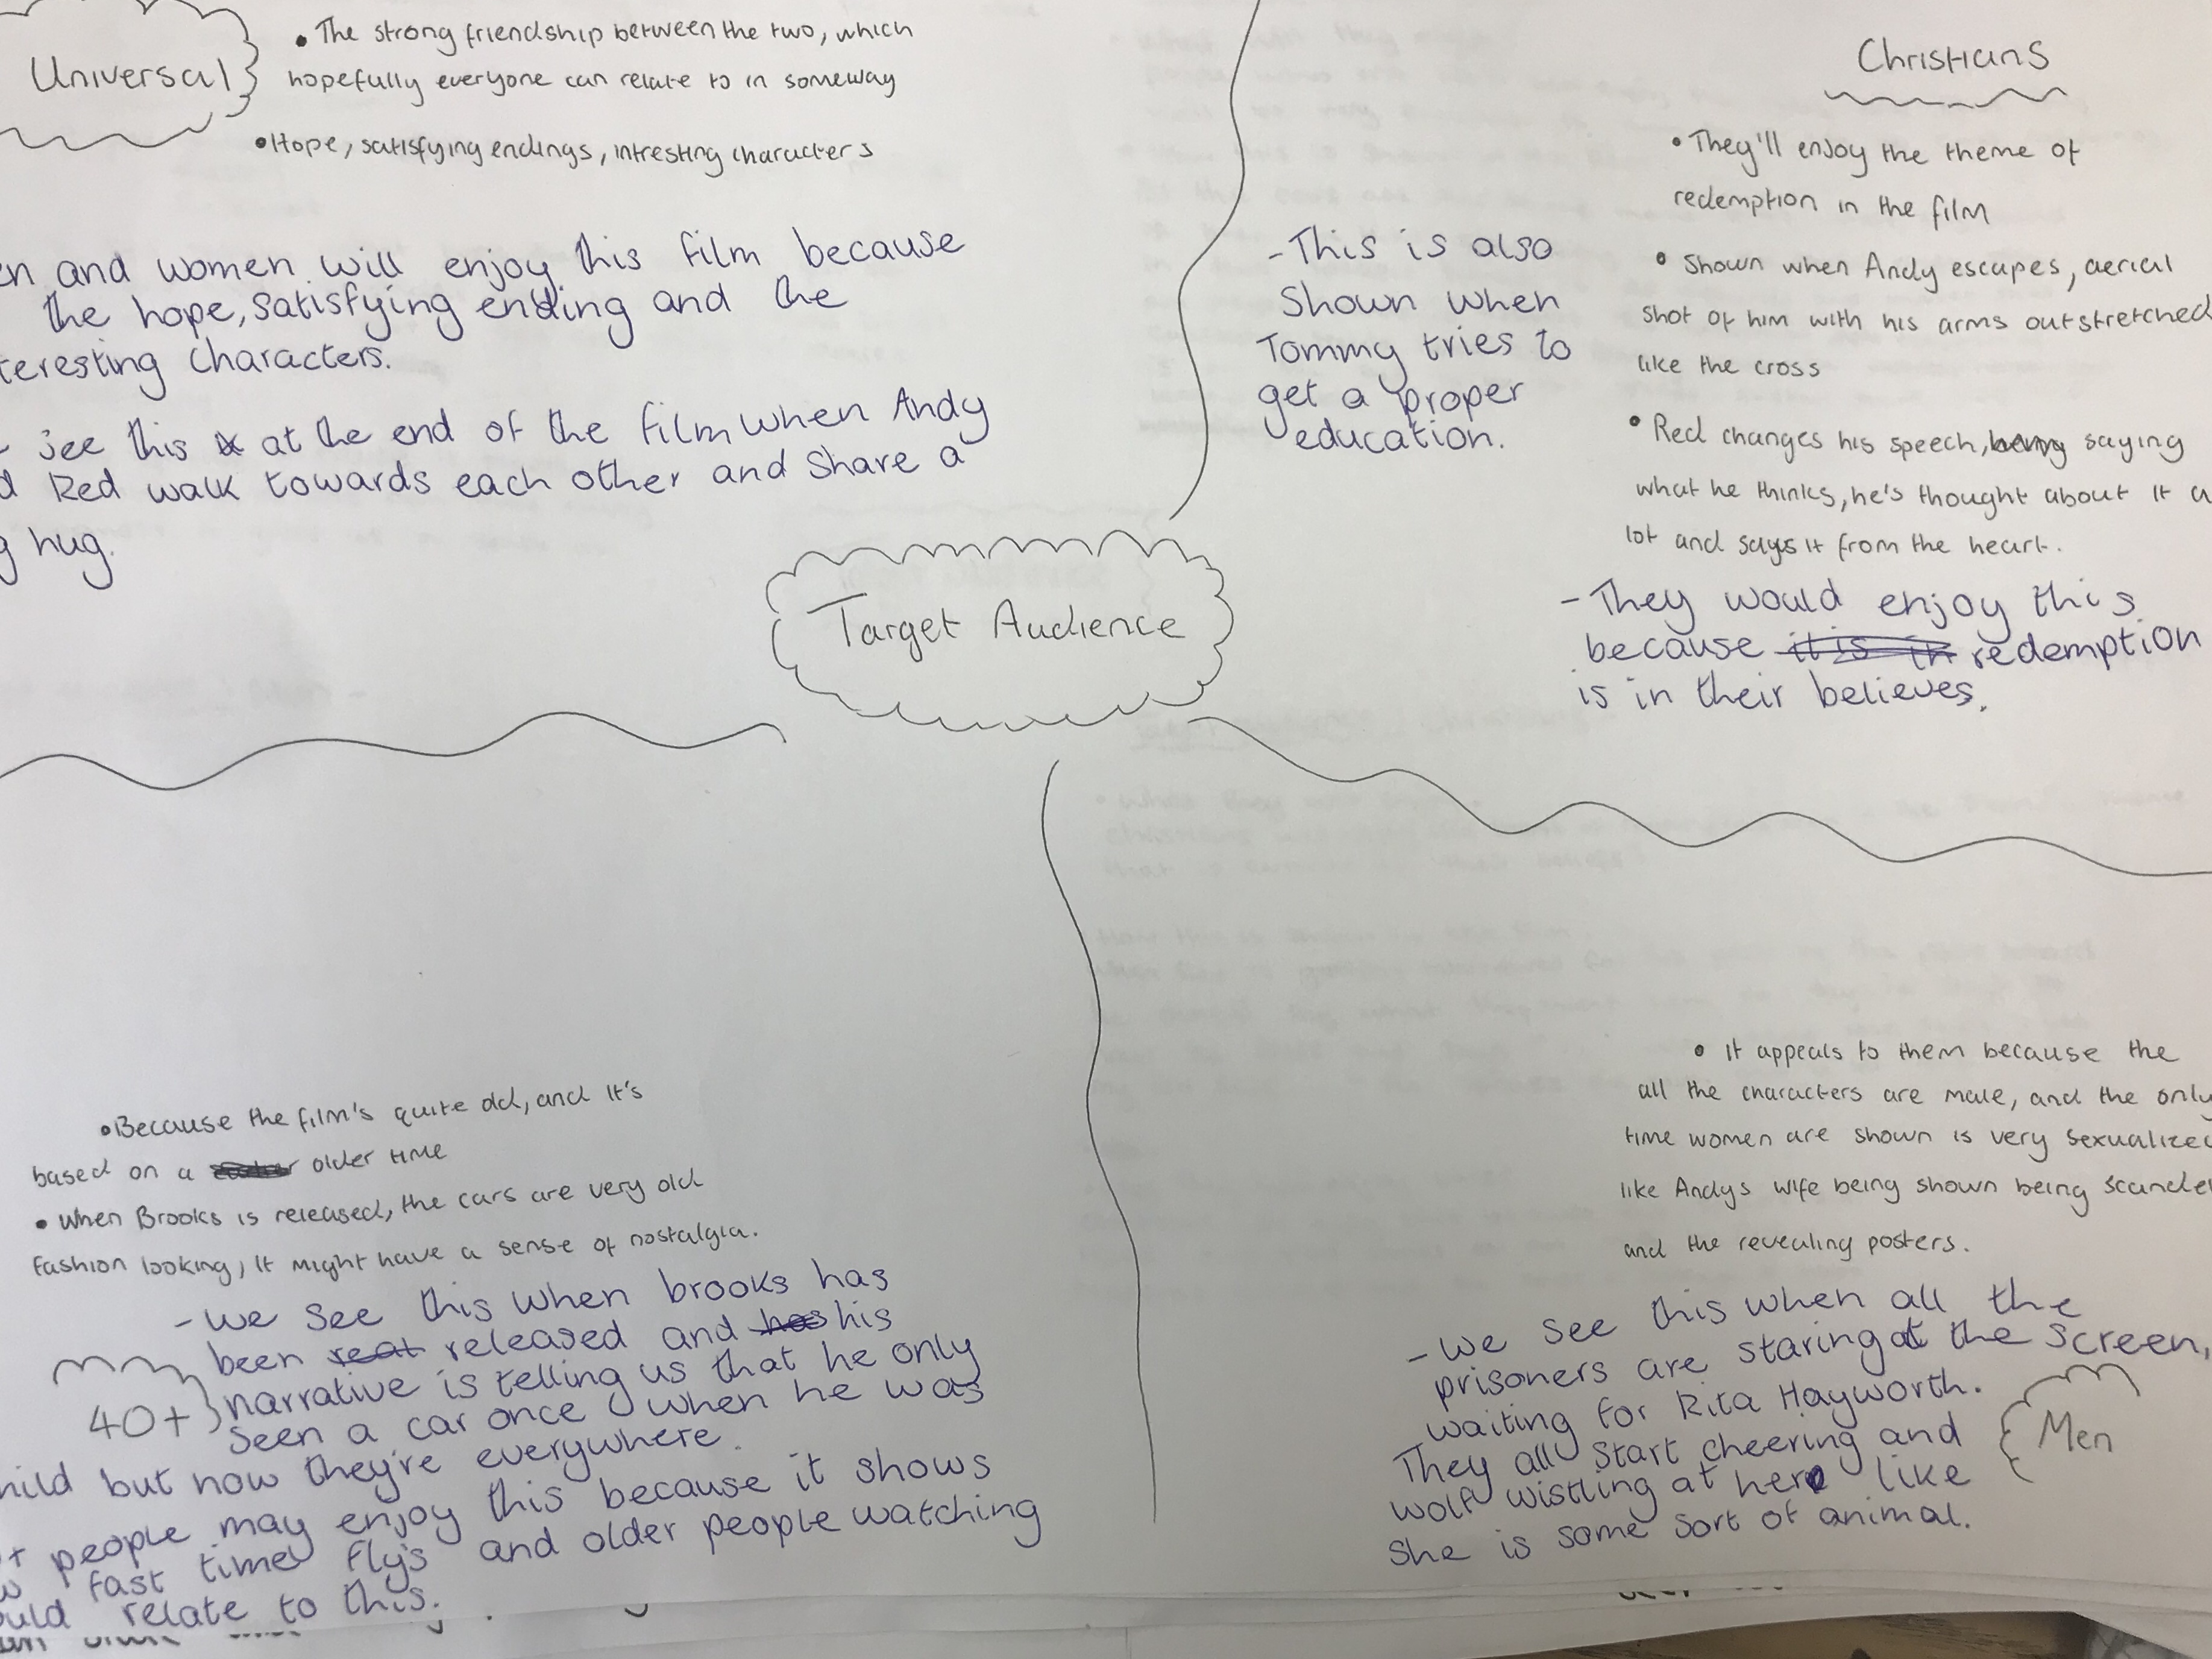 Universal
• The strong friendship between the two, which
hopefully everyone can relate to in someway
• Hope, satisfying endings, intresting characters
and women will enjoy this film because
the hope, satisfying ending and the
teresting characters.
see this at the end of the film when Andy
Red walk towards each other and share a
hug.
Christians
• They'll enjoy the theme of
redemption in the film
• Shown when Andy escapes, aerial
shot of him with his arms outstretched
like the cross
• Red changes his speech, being saying
what he thinks, he's thought about it a
lot and says it from the heart.
- They would enjoy this
because it is in redemption
is in their believes.
- This is also
shown when
Tommy tries to
get a proper
education.
Target Audience
• Because the film's quite old, and it's
based on a older time
• When Brooks is released, the cars are very old
fashion looking, it might have a sense of nostalgia.
- we see this when brooks has
been released and has his
narrative is telling us that he only
seen a car once when he was
hild but now they're everywhere.
people may enjoy this because it shows
fast time fly's and older people watching
ould relate to this.
40+
• It appeals to them because the
all the characters are male, and the only
time women are shown is very sexualized
like Andys wife being shown being scandel
and the revealing posters.
- we see this when all the
prisoners are staring at the screen,
waiting for Rita Hayworth.
They all start cheering and
wolf wistling at her like
she is some sort of animal.
Men